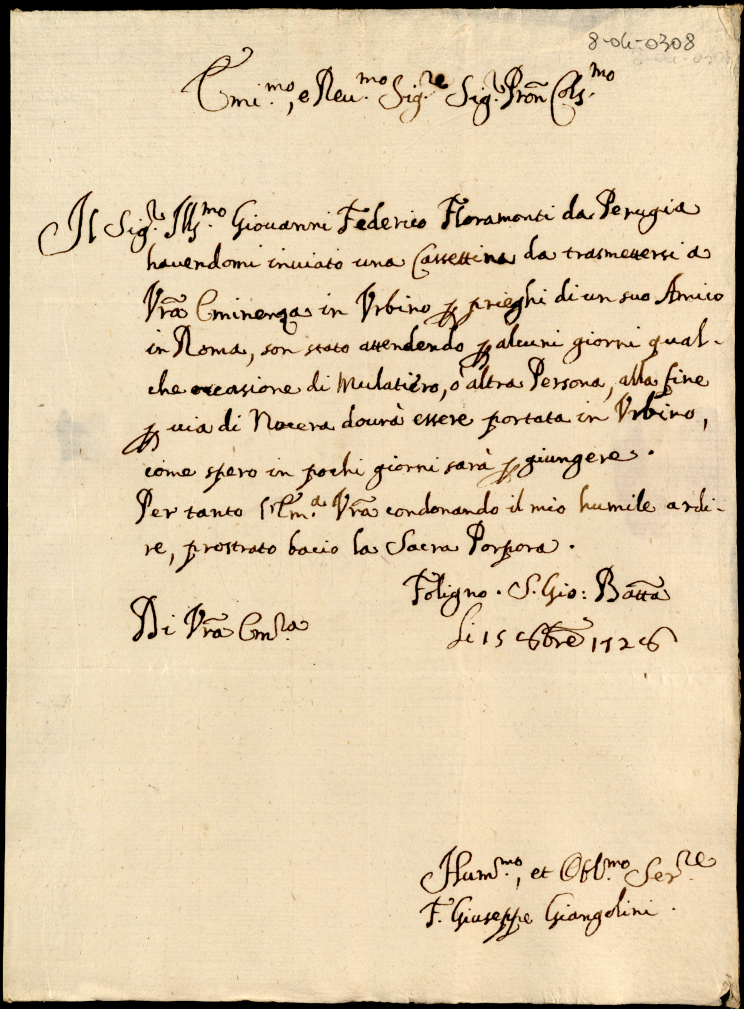 8-04-0308
Emi.mo, e Reu.mo Sig.re Sig.r Pron Cols.mo
Il Sig.r Ills.mo Giouanni Federico Floramonti da Perugia
hauendomi inuiato una Cassettina da trasmettersi a
Vra Eminenza in Vrbino p prieghi di un suo Amico
in Roma, son stato attendendo p alcuni giorni qual-
che occasione di Mulatiero, ò altra Persona, alla fine
p uia di Nocera dourà essere portata in Vrbino,
come spero in pochi giorni sarà p giungere.
Per tanto Vra condonando il mio humile ardi-
re, prostrato bacio la Sacra Porpora.
Foligno. S. Gio: Batta
Di Vra Em.za
li 15 1726
Hum.mo, et Obl.mo Ser.re
F. Giuseppe Giangolini.